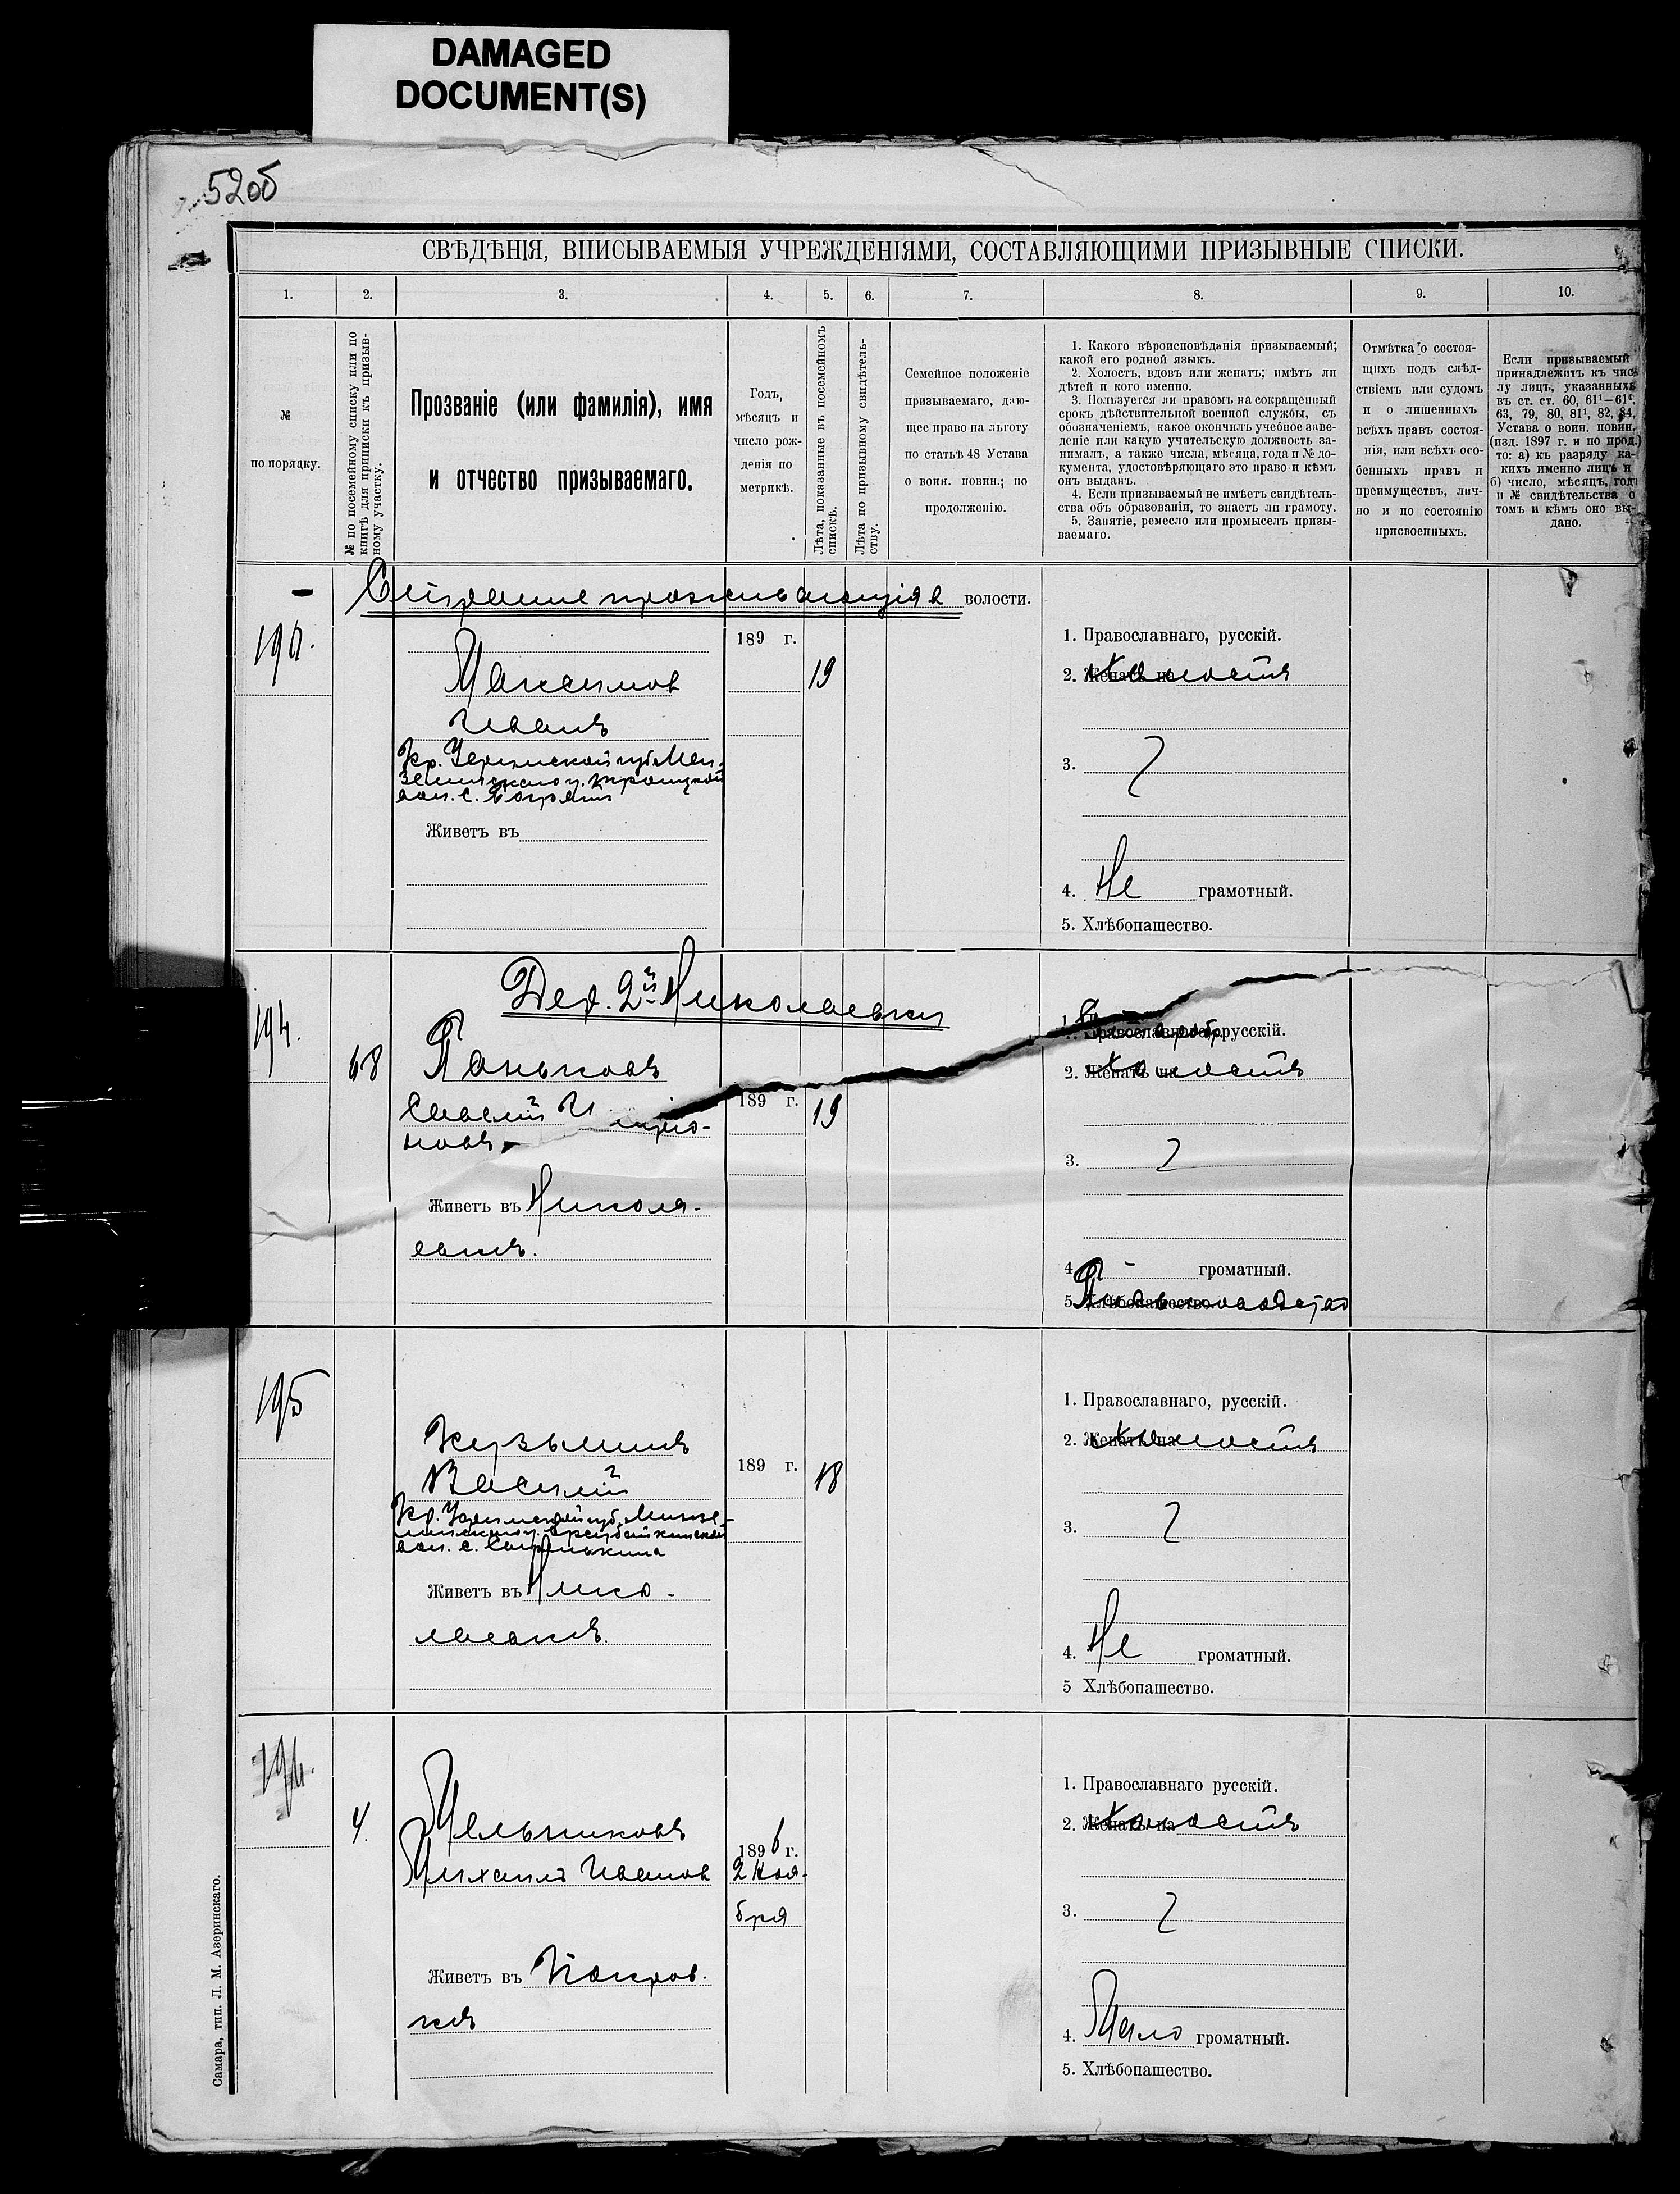 DAMAGED
DOCUMENT(S)
52об
СВѢДѢНІЯ, ВПИСЫВАЕМЫЯ УЧРЕЖДЕНІЯМИ, СОСТАВЛЯЮЩИМИ ПРИЗЫВНЫЕ СПИСКИ.
1. 2. 3. 4. 5. 6. 7. 8. 9. 10.
№
по порядку.
№ по посемейному списку или по
книгѣ для приписки къ призыв-
ному участку.
Прозваніе (или фамилія), имя
и отчество призываемаго.
Годъ,
мѣсяцъ и
число рож-
денія по
метрикѣ.
Лѣта, показанные въ посемейномъ
спискѣ.
Лѣта по призывному свидѣтель-
ству.
Семейное положеніе
призываемаго, даю-
щее право на льготу
по статьѣ 48 Устава
о воин. повин.; по
продолженію.
1. Какого вѣроисповѣданія призываемый;
какой его родной языкъ.
2. Холостъ, вдовъ или женатъ; имѣтъ ли
дѣтей и кого именно.
3. Пользуется ли правомъ на сокращенный
срокъ дѣйствительной военной службы, съ
обозначеніемъ, какое окончилъ учебное заве-
деніе или какую учительскую должность за-
нималъ, а также числа, мѣсяца, года и № до-
кумента, удостовѣряющаго это право и кѣмъ
онъ выданъ.
4. Если призываемый не имѣетъ свидѣтель-
ства объ образованіи, то знаетъ ли грамоту.
5. Занятіе, ремесло или промыселъ призы-
ваемаго.
Отмѣтка о состоя-
щихъ подъ слѣд-
ствіемъ или судомъ
и о лишенныхъ
всѣхъ правъ состоя-
нія, или всѣхъ осо-
бенныхъ правъ и
преимуществъ, лич-
но и по состоянію
присвоенныхъ.
Если призываемый
принадлежитъ къ чис
лу лицъ, указанныхъ
въ ст. ст. 60, 61¹—61⁴,
63, 79, 80, 81¹, 82, 84,
Устава о воин. повин.
(изд. 1897 г. и по прод.)
то: а) къ разряду ка-
кихъ именно лицъ и
б) число, мѣсяцъ, годъ
и № свидѣтельства о
томъ и кѣмъ оно вы-
дано.
волости.
Максимов
Иванъ
Кр. Уфимской губ. Мен-
зелинскаго у. Троицкой
вол. с.
Живетъ въ
189 г.
19
1. Православнаго, русскій.
2. Женатъ на Холостъ
3.
4. Не грамотный.
5. Хлѣбопашество.
Дер. 2й Николаевки
194.
68
Паньковъ
Савелій
новъ
Живетъ въ Никола-
евкѣ.
189 г.
19
1. Православнаго, русскій.
2. Женатъ на Холостъ
3.
4. громатный.
5. Хлѣбопашество.
195
Кузьминъ
Василій
Кр. Уфимской губ. Мензе-
линскаго у.
вол. с.
Живетъ въ Нико-
лаевкѣ.
189 г.
18
1. Православнаго, русскій.
2. Женатъ на Холостъ
3.
4. Не громатный.
5 Хлѣбопашество.
4.
Мельниковъ
Михаилъ Иванов
Живетъ въ Покров-
кѣ
1896 г.
2 Ноя-
бря
1. Православнаго русскій.
2. Женатъ на Холостъ
3.
4. Мало громатный.
5. Хлѣбопашество.
Самара, тип. Л. М. Азеринскаго.